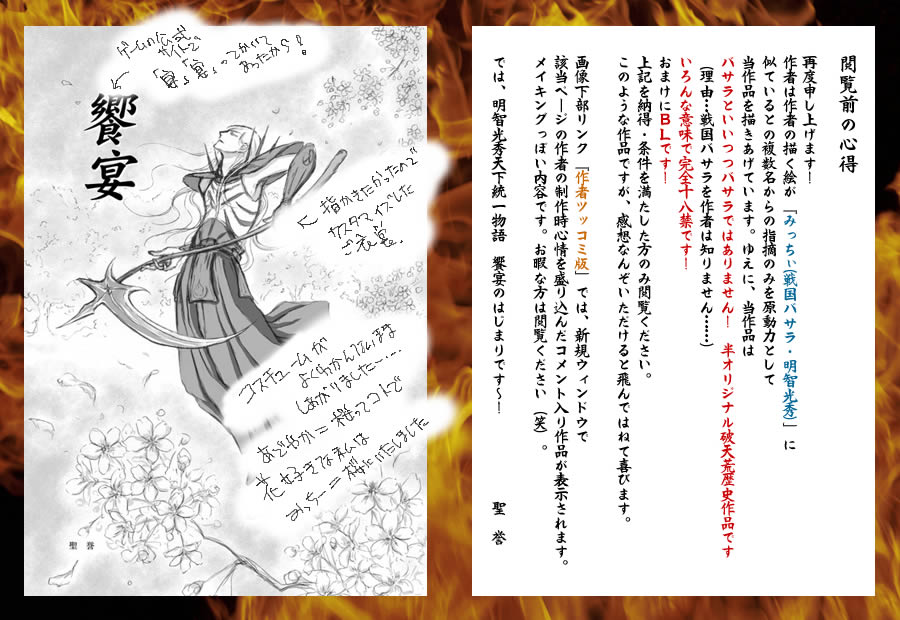 閲覧前の心得
再度申し上げます！
作者は作者の描く絵が「みっちぃ(戦国バサラ・明智光秀)」に
似ているとの複数名からの指摘のみを原動力として
当作品を描きあげています。ゆえに、当作品は
バサラといいつつバサラではありません！　半オリジナル破天荒歴史作品です
(理由…戦国バサラを作者は知りません……)
いろんな意味で完全十八禁です！
おまけにＢＬです！
上記を納得・条件を満たした方のみ閲覧ください。
このような作品ですが、感想なんぞいただけると飛んではねて喜びます。
画像下部リンク「作者ツッコミ版」では、新規ウィンドウで
該当ページの作者の制作時心情を盛り込んだコメント入り作品が表示されます。
メイキングっぽい内容です。お暇な方は閲覧ください（笑）。
では、明智光秀天下統一物語　饗宴のはじまりです～！
聖　誉
ゲームの公式
サイトで
ってかいて
あったから！
饗宴
指かきたかったので
カスタマイズした
ご衣裳。
コスチュームが
よくわかんないまま
しあがりました……
あでやか＝桜ってコトで
花好きな私は
みっちー＝桜にいたしました
聖　誉